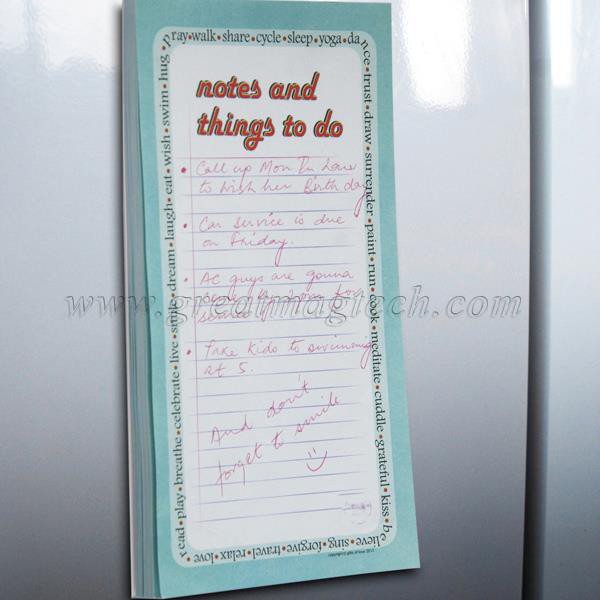 pray • walk • share • cycle • sleep • yoga • dance • trust • draw • surrender • paint • run • cook • meditate • cuddle • grateful • kiss • believe • sing • forgive • travel • relax • love
read • play • breathe • celebrate • live • smile • dream • laugh • eat • wish • swim • hug
notes and
things to do
• Call up Mon In Law
to wish her Birthday
• Car service is due
on Friday.
• AC guys are gonna
service
• Take kids to swimming
at 5.
And don't
forget to smile
www.greatmagtech.com